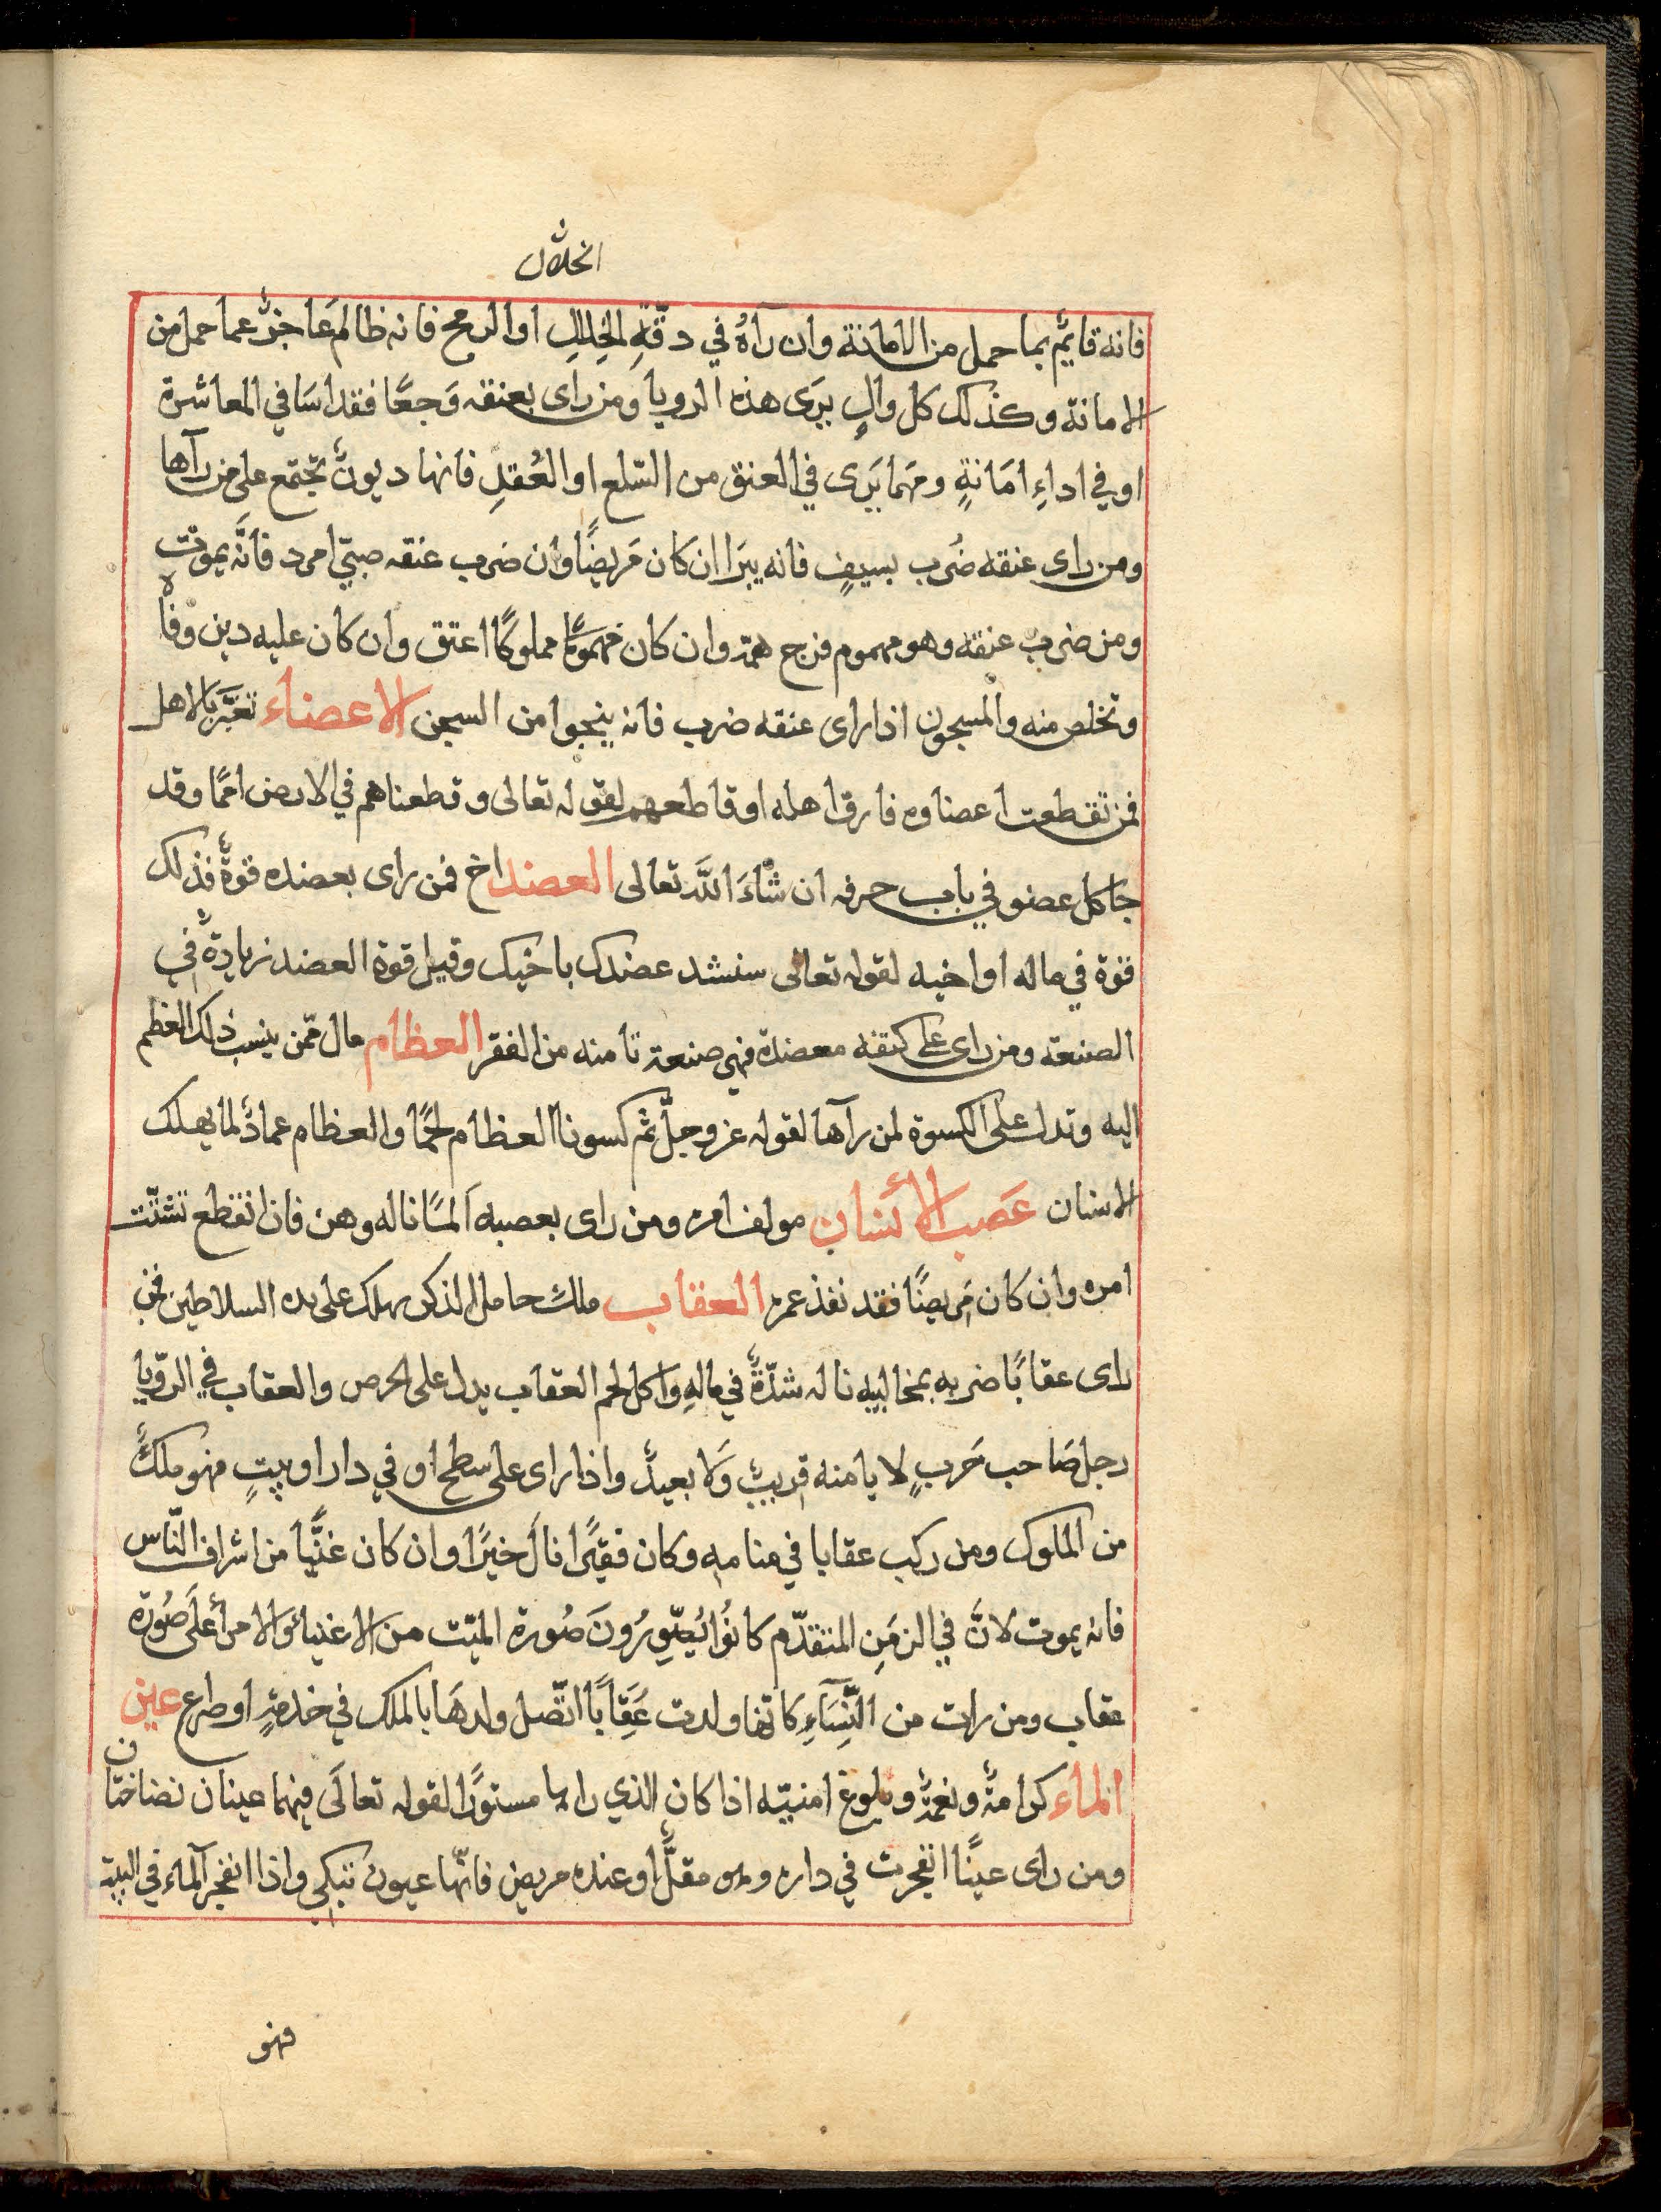 الخلال
فانه قايمٌ بما حمل من الامانة وان رآهُ في دقّةِ الخِلالِ او الرمح فانه ظالم عَاجزٌ عما حمل من
الامانة وكذلك كل والٍ يرَى هذه الرويا ومن راى بعنقه وَجعًا فقد اسَا في المعاشرة
او في اداءِ امَانةٍ ومَهما يَرى في العنق من السّلع او العُقدِ فانها ديونٌ تجتمع على من رآها
ومن راى عنقه ضُرب بسيفٍ فانه يبرَا ان كان مَريضًا وان ضرب عنقه صبيّ امرد فانَّه يموت
ومن ضرب عنقه وهو مهموم فرج همّه وان كان مهمومًا مملوكًا اعتق وان كان عليه دين وفاه
وتخلص منه والمسجون اذا راى عنقه ضرب فانه ينجوا من السجن الاعضاء تعبَّر بالاهل
فمن تقطعت اعضاوه فارق اهله او قاطعهم لقوله تعالى وقطعناهم في الارض امَمًا وقد
جا كل عضو في باب حرفه ان شَاءَ اللَّه تعالى العضد اخ فمن راى بعضده قوةٌ فذلك
قوة في ماله او اخيه لقوله تعالى سنشد عضدك باخيك وقيل قوة العضد زيادةٌ في
الصنعه ومن راى على كتفه معضدة فهي صنعة تامنه من الفقر العظام مال ممّن ينسب ذلك العظم
اليه وتدل على الكسوة لمن رآها لقوله عز وجلّ ثم كسونا العظام لحمًا والعظام عمادٌ لما يملك
الانسان عَصَب الأنسَان مولف امره ومن راى بعصبه اَلمًا ناله وهن فان انقطع تشتّت
امره وان كان مَريضًا فقد نفذ عمره العقاب ملك حامل الذكر يهلك على يده السلاطين فمن
راى عقابًا ضربه بمخالبيه ناله شدّةٌ في مالهِ واكل لحم العقاب يدل على الحرص والعقاب في الرّويا
رجل صَاحب حَربٍ لا يامنه قريبٌ وَلا بعيدٌ واذا راى على سطح او في دار او بيتٍ فهو ملكٌ
من الملوك ومن ركب عقابا في منامهِ وكان فقيرًا نالَ خيرًا وان كان غنيًّا من اشراف النّاس
فانه يموت لانَّ في الزمَنِ المتقدّم كانُوا يُصّوِرُونَ صُورة الميّت من الاغنياءِ والامراءُ علَى صُورة
عقاب ومن رات من النّسَآءِ كانّها ولدت عُقابًا اتّصل ولدهَا بالملك في خدمةٍ او صراع عين
الماء كرامةٌ ونعمةٌ وبلوغ امنيّه اذا كان الذي راها مستورًا لقوله تعالَى فيهما عينان نضاختان
ومن راى عينًا انفجرت في داره وهو مقلٌّ او عنده مريض فانّها عيون تبكي واذا انفجر المآء في البيت
فهو